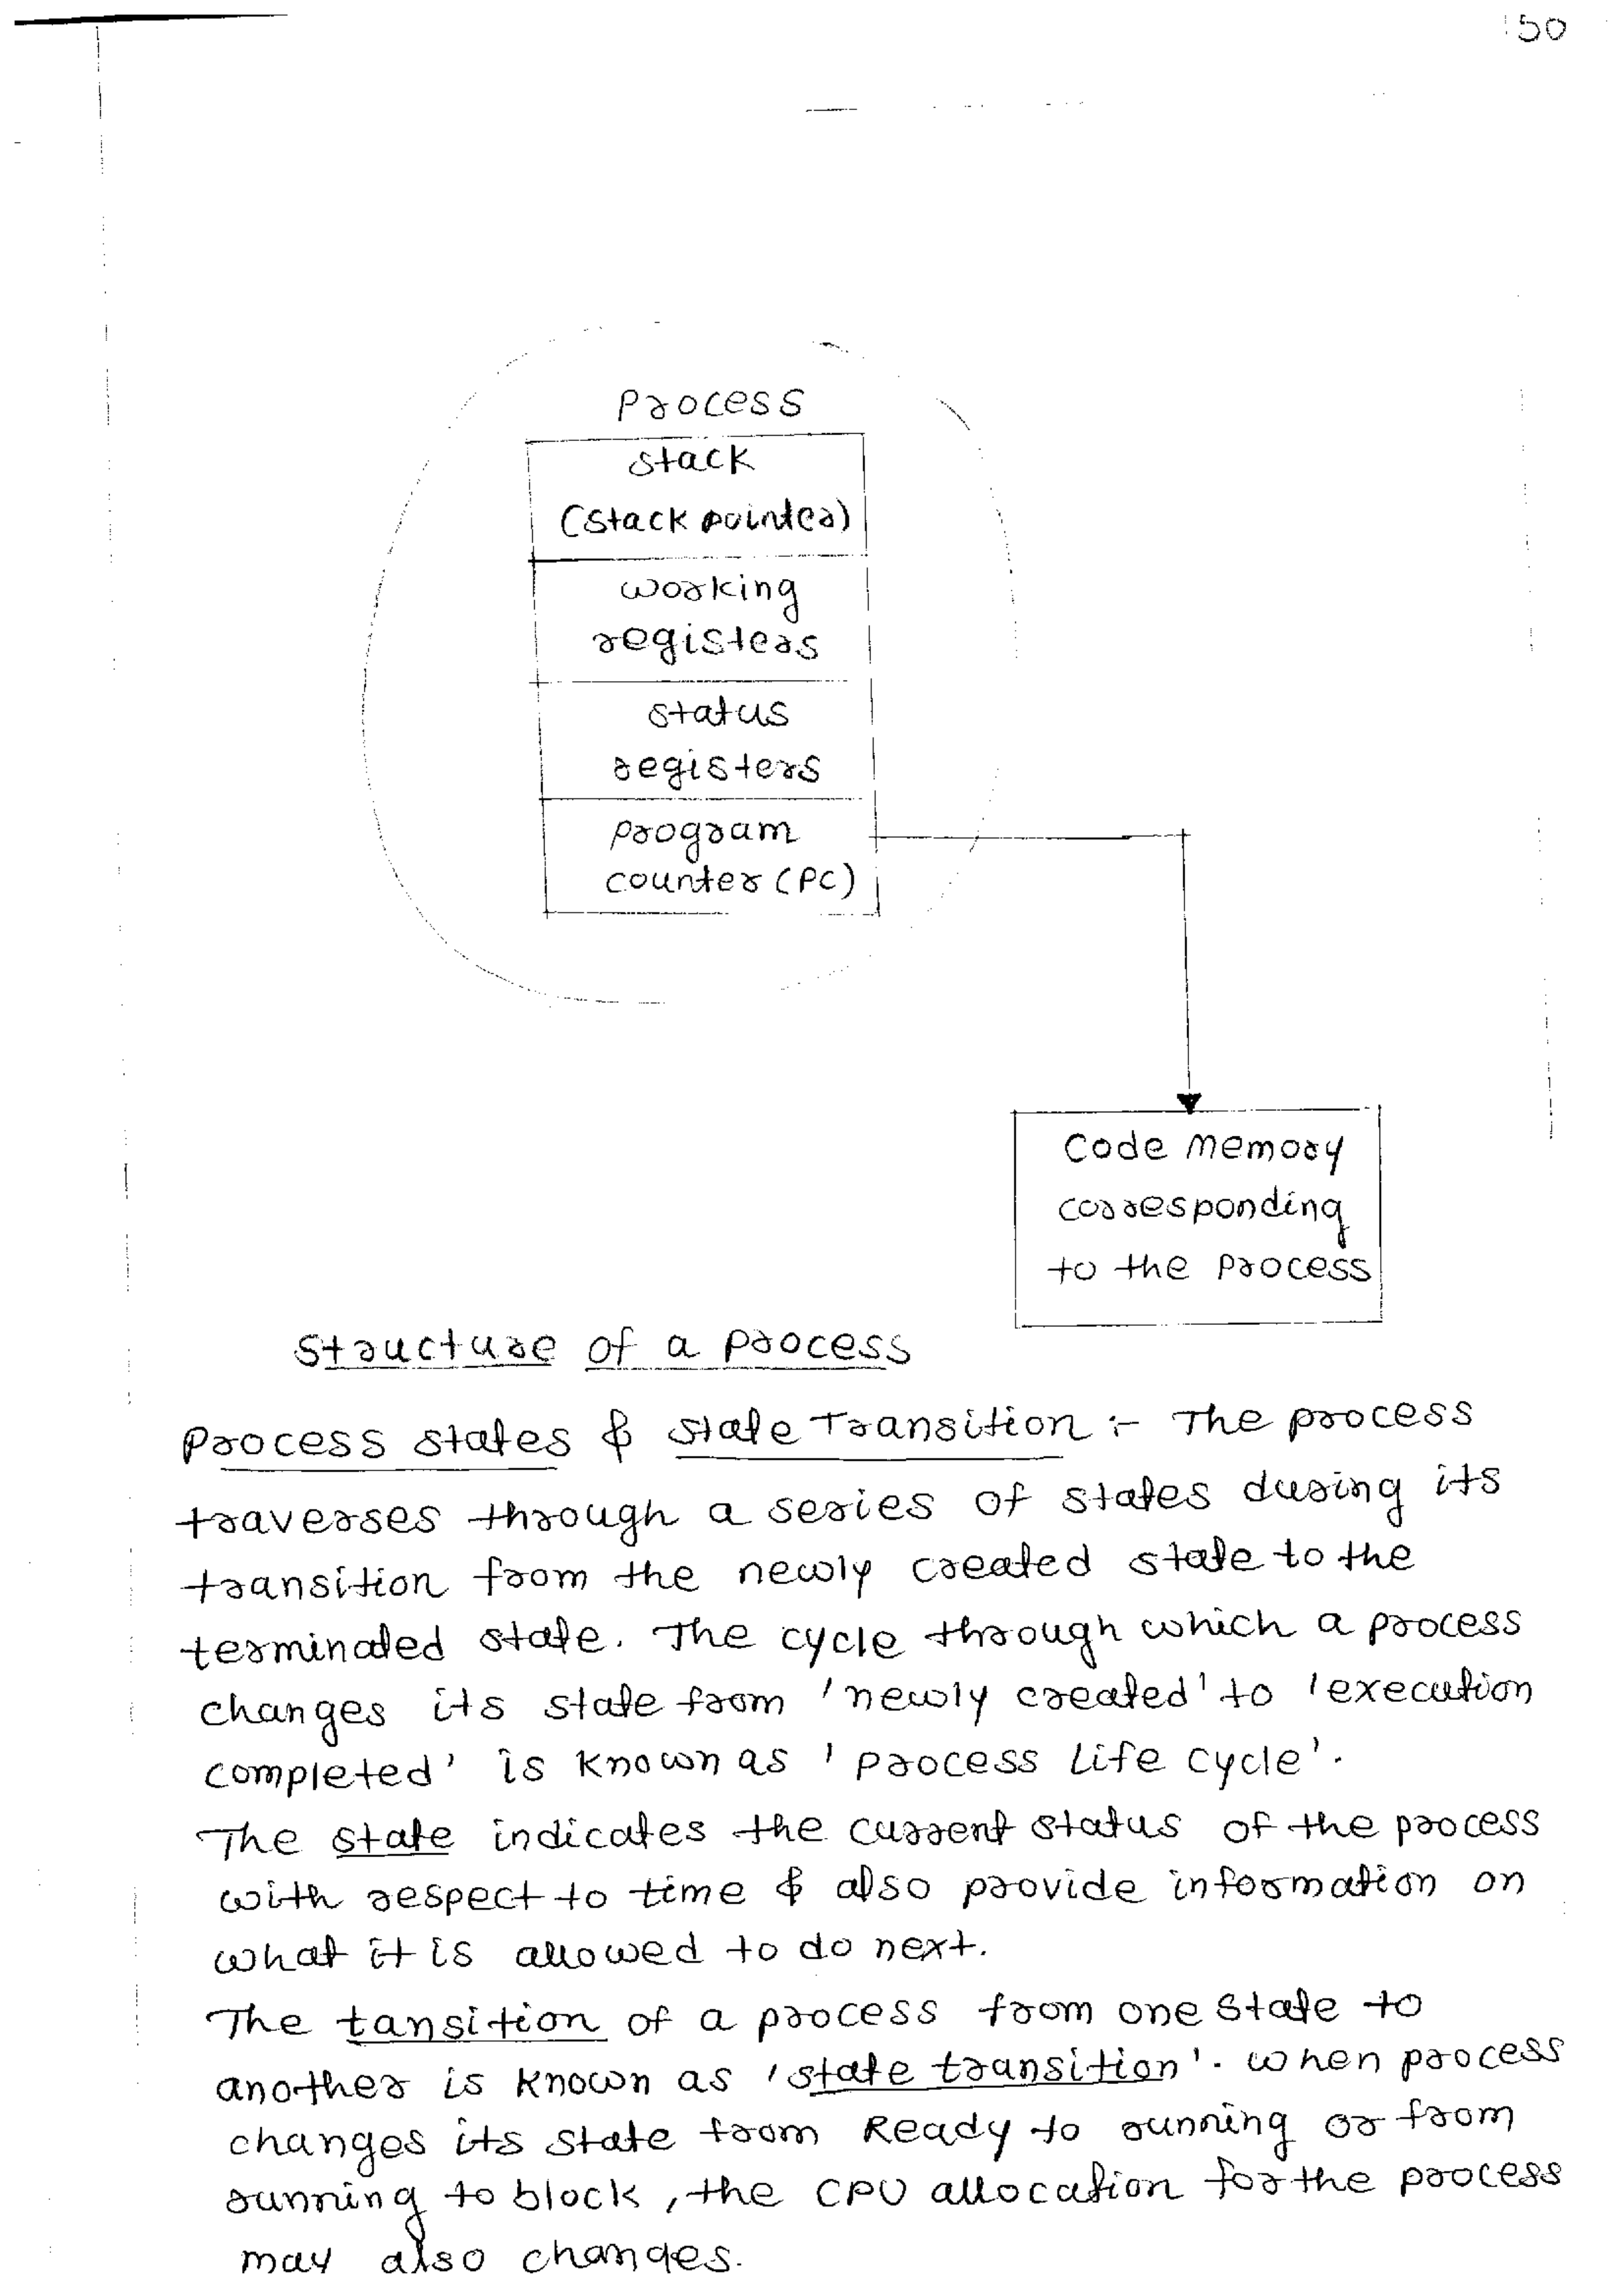 50
Process
Stack
(Stack pointer)
working
registers
status
registers
program
counter (PC)
Code Memory
corresponding
to the Process
Structure of a Process
Process states & State Transition :- The process
traverses through a series of states during its
transition from the newly created state to the
terminated state. The cycle through which a process
changes its state from 'newly created' to 'execution
completed' is known as 'Process Life cycle'.
The state indicates the current status of the process
with respect to time & also provide information on
what it is allowed to do next.
The tansition of a process from one state to
another is known as 'state transition'. When process
changes its state from Ready to running or from
running to block, the CPU allocation for the process
may also changes.